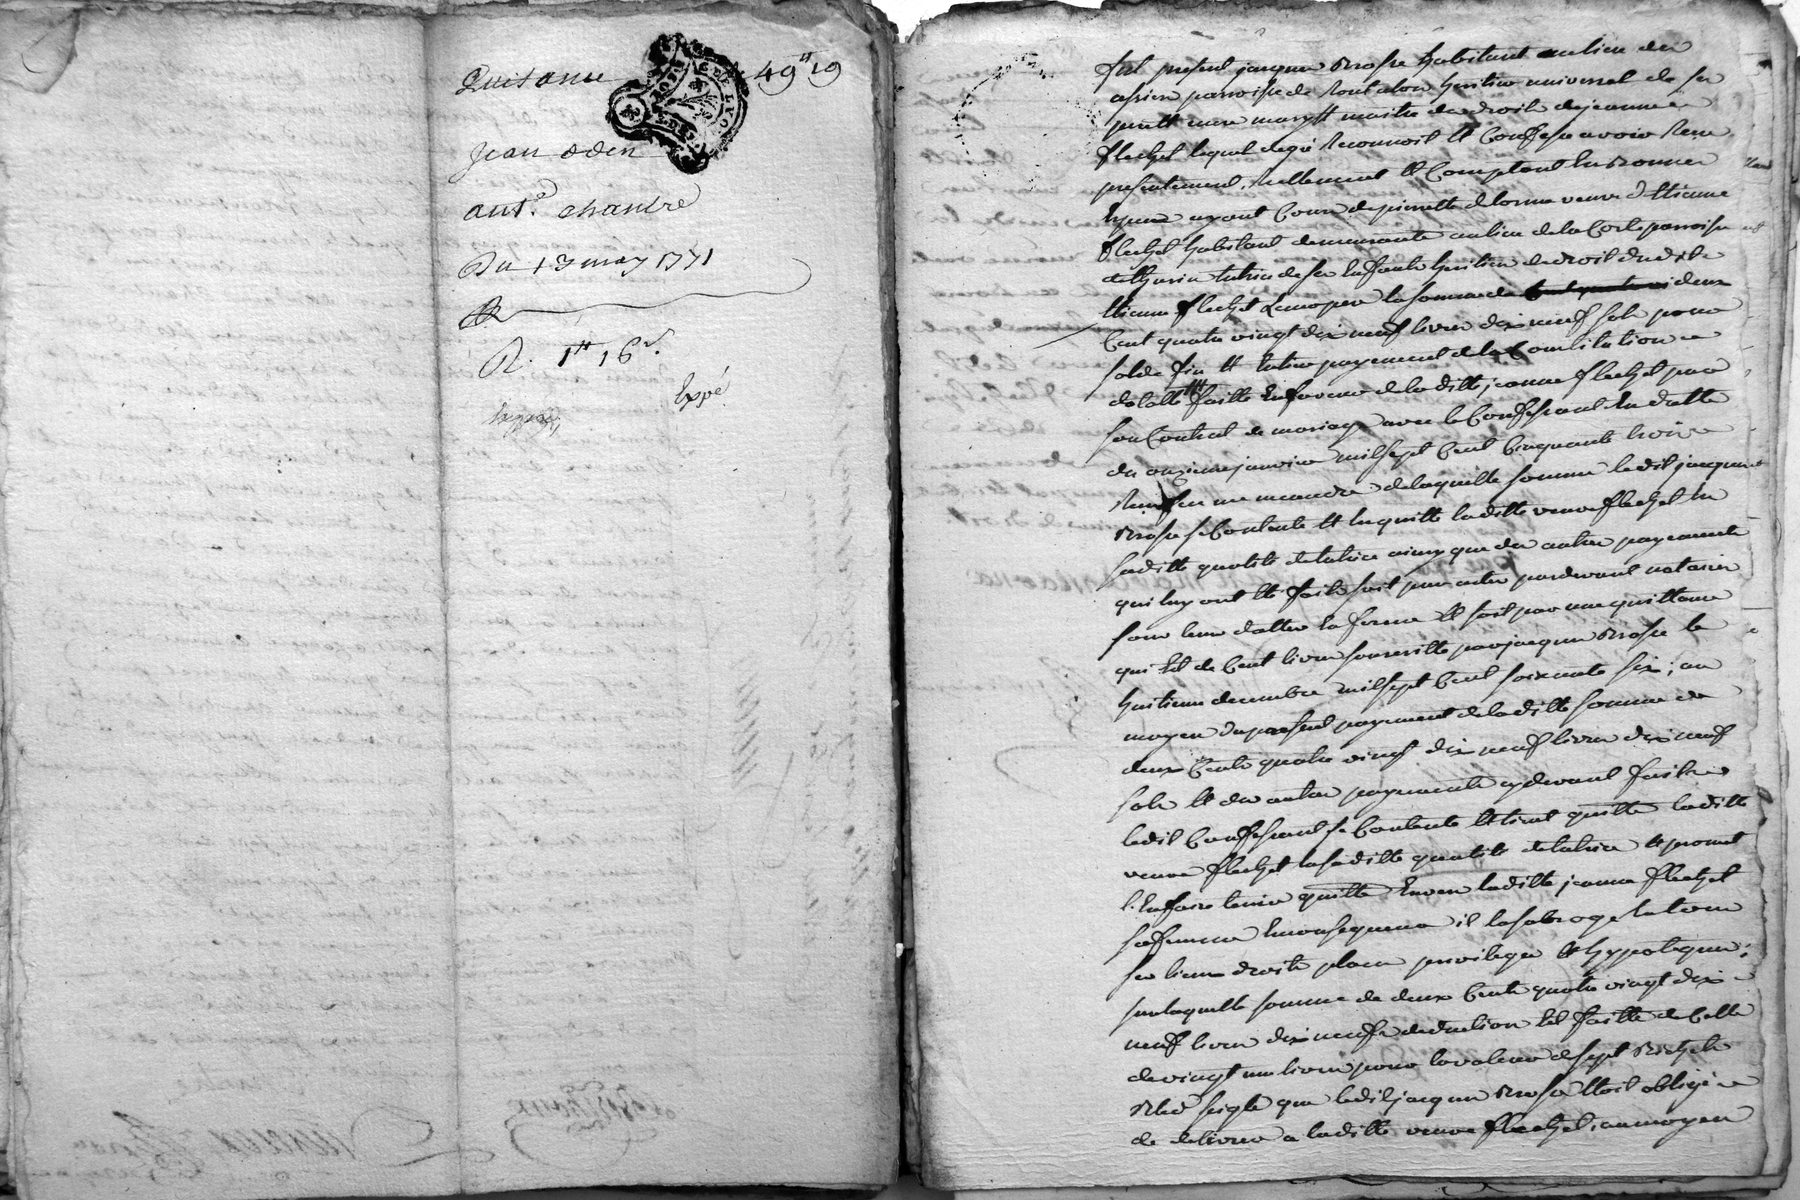 Quitance
49tt 19
jean oden
ant.e chantre
Du 13 may 1771
R. 1tt 16s.
Expé
fut present jacque Brosse habitant au lieu de
paroisse de heritier universel de sa
mere maitre de droits de jeanne
flechet lequel de gré reconnoit et Confesse avoir Recu
presentement, Réellement et Comptant En Bonnes
Especes ayant Cours de pierrette delorme veuve d'Ettienne
flechet habitant demeurante au lieu de la Cote paroisse
tutrice de ses Enfants heritiers de droit dudit
Ettienne flechet Leur pere la somme de deux
Cent quatre vingt dix neuf livres dix neuf sols pour
solde fin et Entier payement de la Constitution
dotalle faitte En faveur de laditte jeanne flechet par
son Contrat de mariage avec le Confessant En datte
du onzieme janvier mil sept Cent Cinquante trois
de laquelle somme ledit jacque
Brosse se Contente et En quitte laditte veuve flechet En
saditte qualité de tutrice ainsy que des autres payements
qui luy ont Eté faits soit par actes pardevant notaires
sous leurs dattes En forme et soit par une quittance
qui Est de Cent livres souscritte par jacque Brosse le
huitieme decembre mil sept Cent soixante six; au
moyen du present payement de laditte somme de
deux Cents quatre vingt dix neuf livres dix neuf
sols et des autres payements cy devant faits
ledit Confessant se Contente Et tient quitte laditte
veuve flechet En saditte qualité de tutrice et promet
l'En faire tenir quitte Envers laditte jeanne flechet
sa femme En consequence il la subroge En tous
ses lieux droits place privileges et hypoteques;
sur laquelle somme de deux Cents quatre vingt dix
neuf livres dix neuf sols deduction Est faitte de Celle
de vingt une livres pour la valeur de sept Bichets
Bled seigle que ledit jacque Brosse Etoit obligé
de delivrer a laditte veuve flechet, au moyen